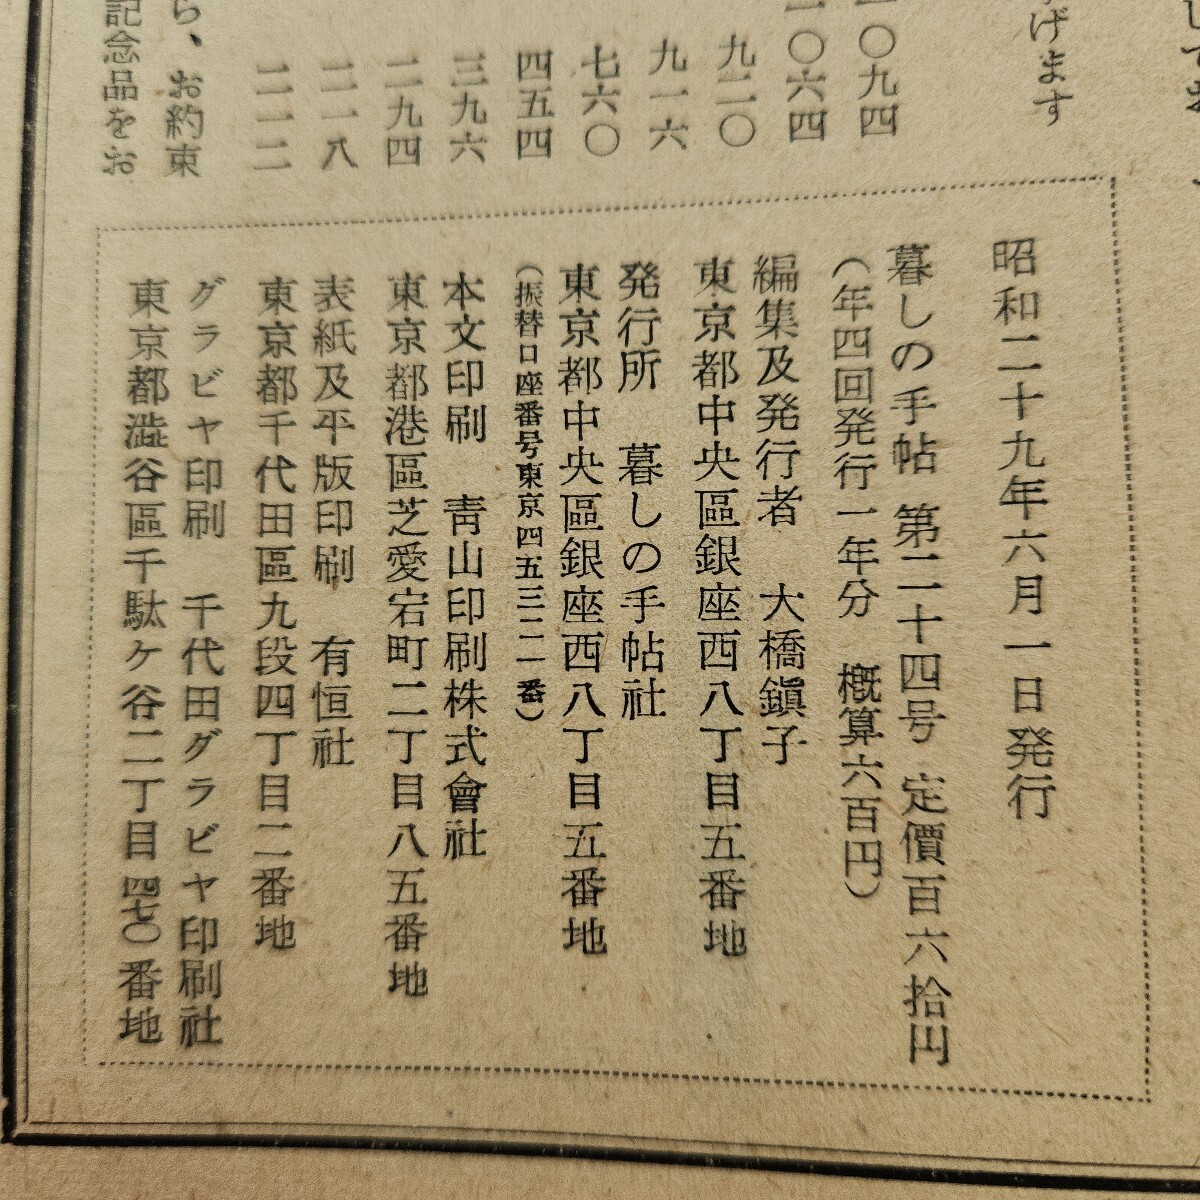 げます
一〇九四
一〇六四
九二〇
九一六
七六〇
四五四
三九六
二九四
二一八
二一二
ら、お約束
記念品をお
昭和二十九年六月一日発行
暮しの手帖 第二十四号 定價百六拾円
(年四回発行一年分 概算六百円)
編集及発行者 大橋鎭子
東京都中央區銀座西八丁目五番地
発行所 暮しの手帖社
東京都中央區銀座西八丁目五番地
(振替口座番号東京四五三二一番)
本文印刷 靑山印刷株式會社
東京都港區芝愛宕町二丁目八五番地
表紙及平版印刷 有恒社
東京都千代田區九段四丁目二番地
グラビヤ印刷 千代田グラビヤ印刷社
東京都澁谷區千駄ケ谷二丁目四七〇番地